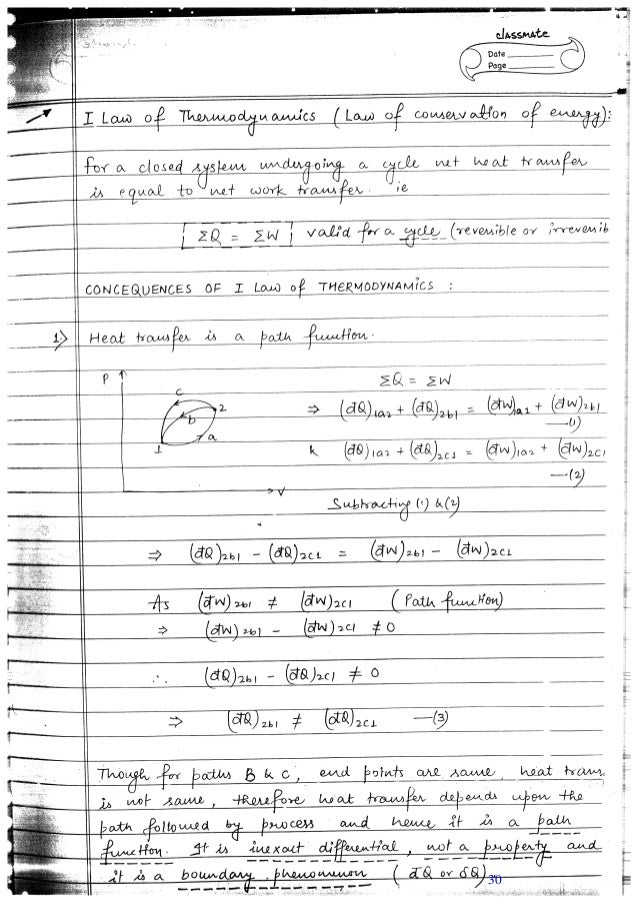 classmate
Date
Page
I Law of Thermodynamics (Law of conservation of energy):
for a closed system undergoing a cycle net heat transfer
is equal to net work transfer. ie
ΣQ = ΣW valid for a cycle (reversible or irreversib
CONCEQUENCES OF I Law of THERMODYNAMICS :
1) Heat transfer is a path function.
P
C
b
2
a
1
V
ΣQ = ΣW
⇒ (đQ)1a2 + (đQ)2b1 = (đW)1a2 + (đW)2b1
—(1)
& (đQ)1a2 + (đQ)2c1 = (đW)1a2 + (đW)2c1
—(2)
Subtracting (1) & (2)
⇒ (đQ)2b1 - (đQ)2c1 = (đW)2b1 - (đW)2c1
As (đW)2b1 ≠ (đW)2c1 (Path function)
⇒ (đW)2b1 - (đW)2c1 ≠ 0
∴ (đQ)2b1 - (đQ)2c1 ≠ 0
⇒ (đQ)2b1 ≠ (đQ)2c1 —(3)
Though for paths B & C, end points are same, heat trans
is not same, therefore heat transfer depends upon the
path followed by process and hence it is a path
function. It is inexact differential, not a property and
it is a boundary phenomenon (đQ or δQ)
30